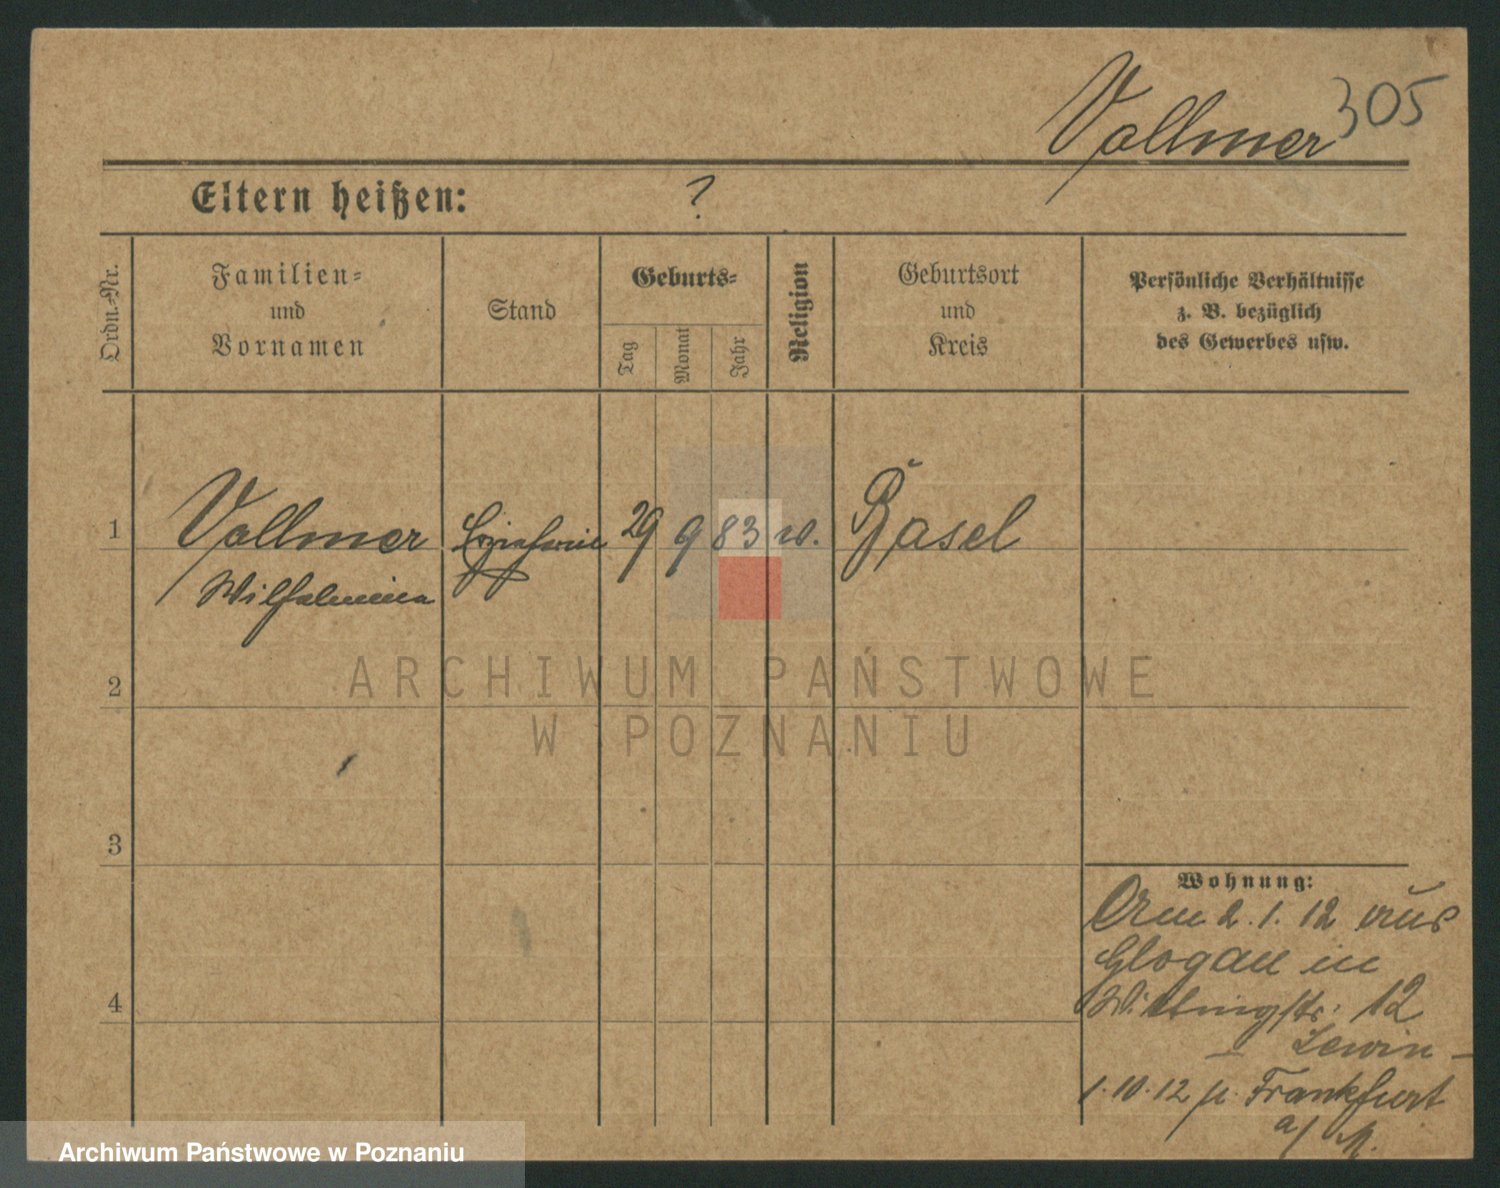 Vollmer 305
Eltern heißen: ?
Ordn.-Nr.
Familien-
und
Vornamen
Stand
Geburts-
Tag
Monat
Jahr
Religion
Geburtsort
und
Kreis
Persönliche Verhältnisse
z. B. bezüglich
des Gewerbes usw.
1 Vollmer 29 9 83 Basel
Wilhelmina
2
3
4
Wohnung:
2. 1. 12 aus
Glogau in
12
– Lewin –
1. 10. 12 Frankfurt
a/M.
ARCHIWUM PAŃSTWOWE
W POZNANIU
Archiwum Państwowe w Poznaniu